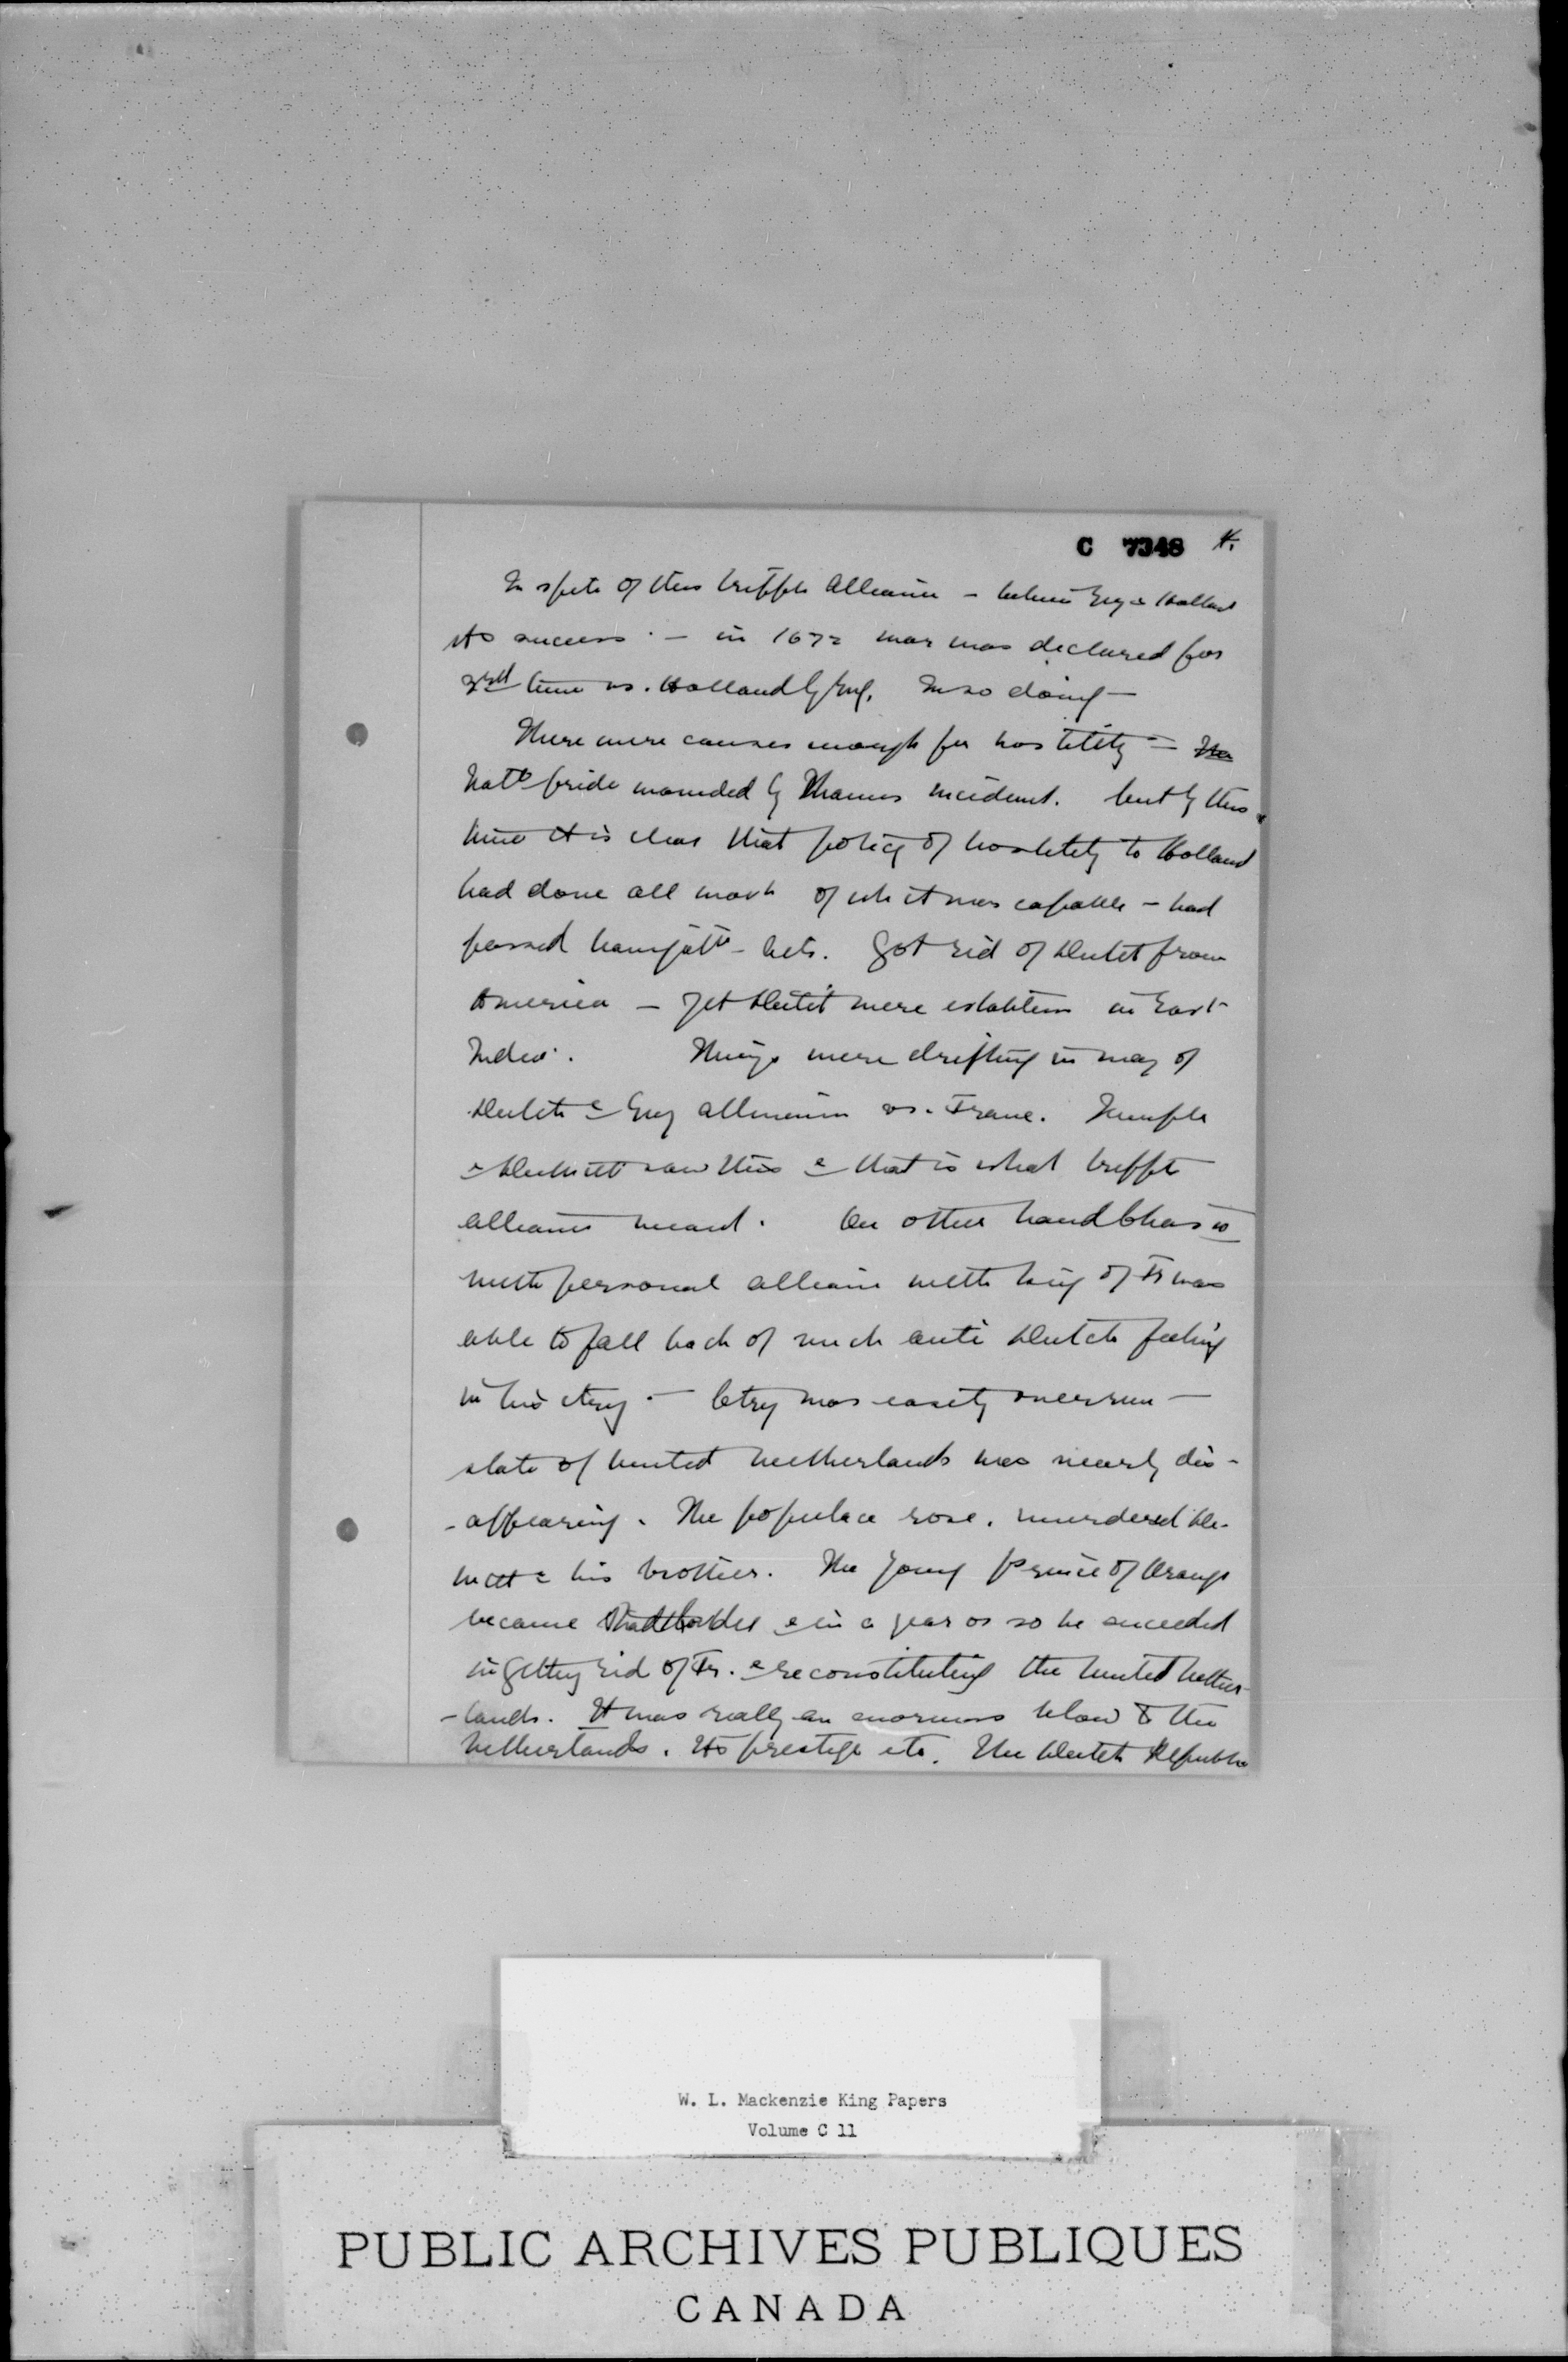 C 7348 4.
In spite of this tripple Alliance - between Eng & Holland
its success - in 1672 war was declared for
3rd time vs. Holland by Eng. In so doing -
There were causes enough for hostility - The
Natl pride wounded by Thames incident. but by this
time it is clear that policy of hostility to Holland
had done all work of wh it was capable - had
passed Navigatn Acts. Got rid of Dutch from
America - yet Dutch were establishd in East
Indies. Things were drifting in way of
Dutch & Eng alliance vs. France. Temple
& DeWitt saw this & that is what tripple
alliance meant. On other hand Chas II
with personal alliance with king of Fr was
able to fall back of much anti Dutch feeling
in his ctry - Ctry was easily overrun -
state of United Netherlands was nearly dis-
-appearing. The populace rose, murdered De-
Witt & his brother. The young Prince of Orange
became Stadtholder & in a year or so he succeeded
in getting rid of Fr. & reconstituting the United Nether-
-lands. It was really an enormous blow to the
Netherlands. Its prestige etc. The Dutch Republic
W. L. Mackenzie King Papers
Volume C 11
PUBLIC ARCHIVES PUBLIQUES
CANADA